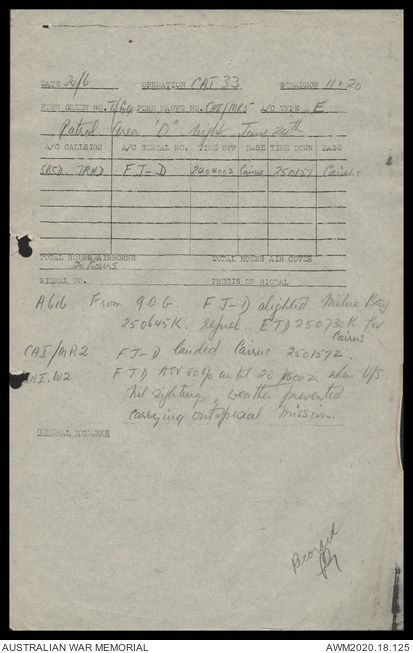 DATE 24/6 OPERATION CAT 33 SQUADRON 11 & 20
FORM GREEN NO. T/64 FORM MARYS NO. CAI/MR5 A/C TYPE E
Patrol Area "D" Night June 24th
A/C CALLSIGN A/C SERIAL NO. TIME OFF BASE TIME DOWN BASE
FJ-D 240400Z Cairns 250157 Cairns
TOTAL HOURS AIRBORNE TOTAL HOURS AIR COVER
hours
SIGNAL NO. PRECIS OF SIGNAL
A616 From 9.O.G. FJ-D alighted Milne Bay
250645K. refuel. ETD 250730K for
Cairns
CAI/MR2 FJ-D landed Cairns 250157Z.
FJD ASV until when U/S
Nil sightings, weather prevented
carrying out special mission.
GENERAL REMARKS
Recorded
AUSTRALIAN WAR MEMORIAL AWM2020.18.125